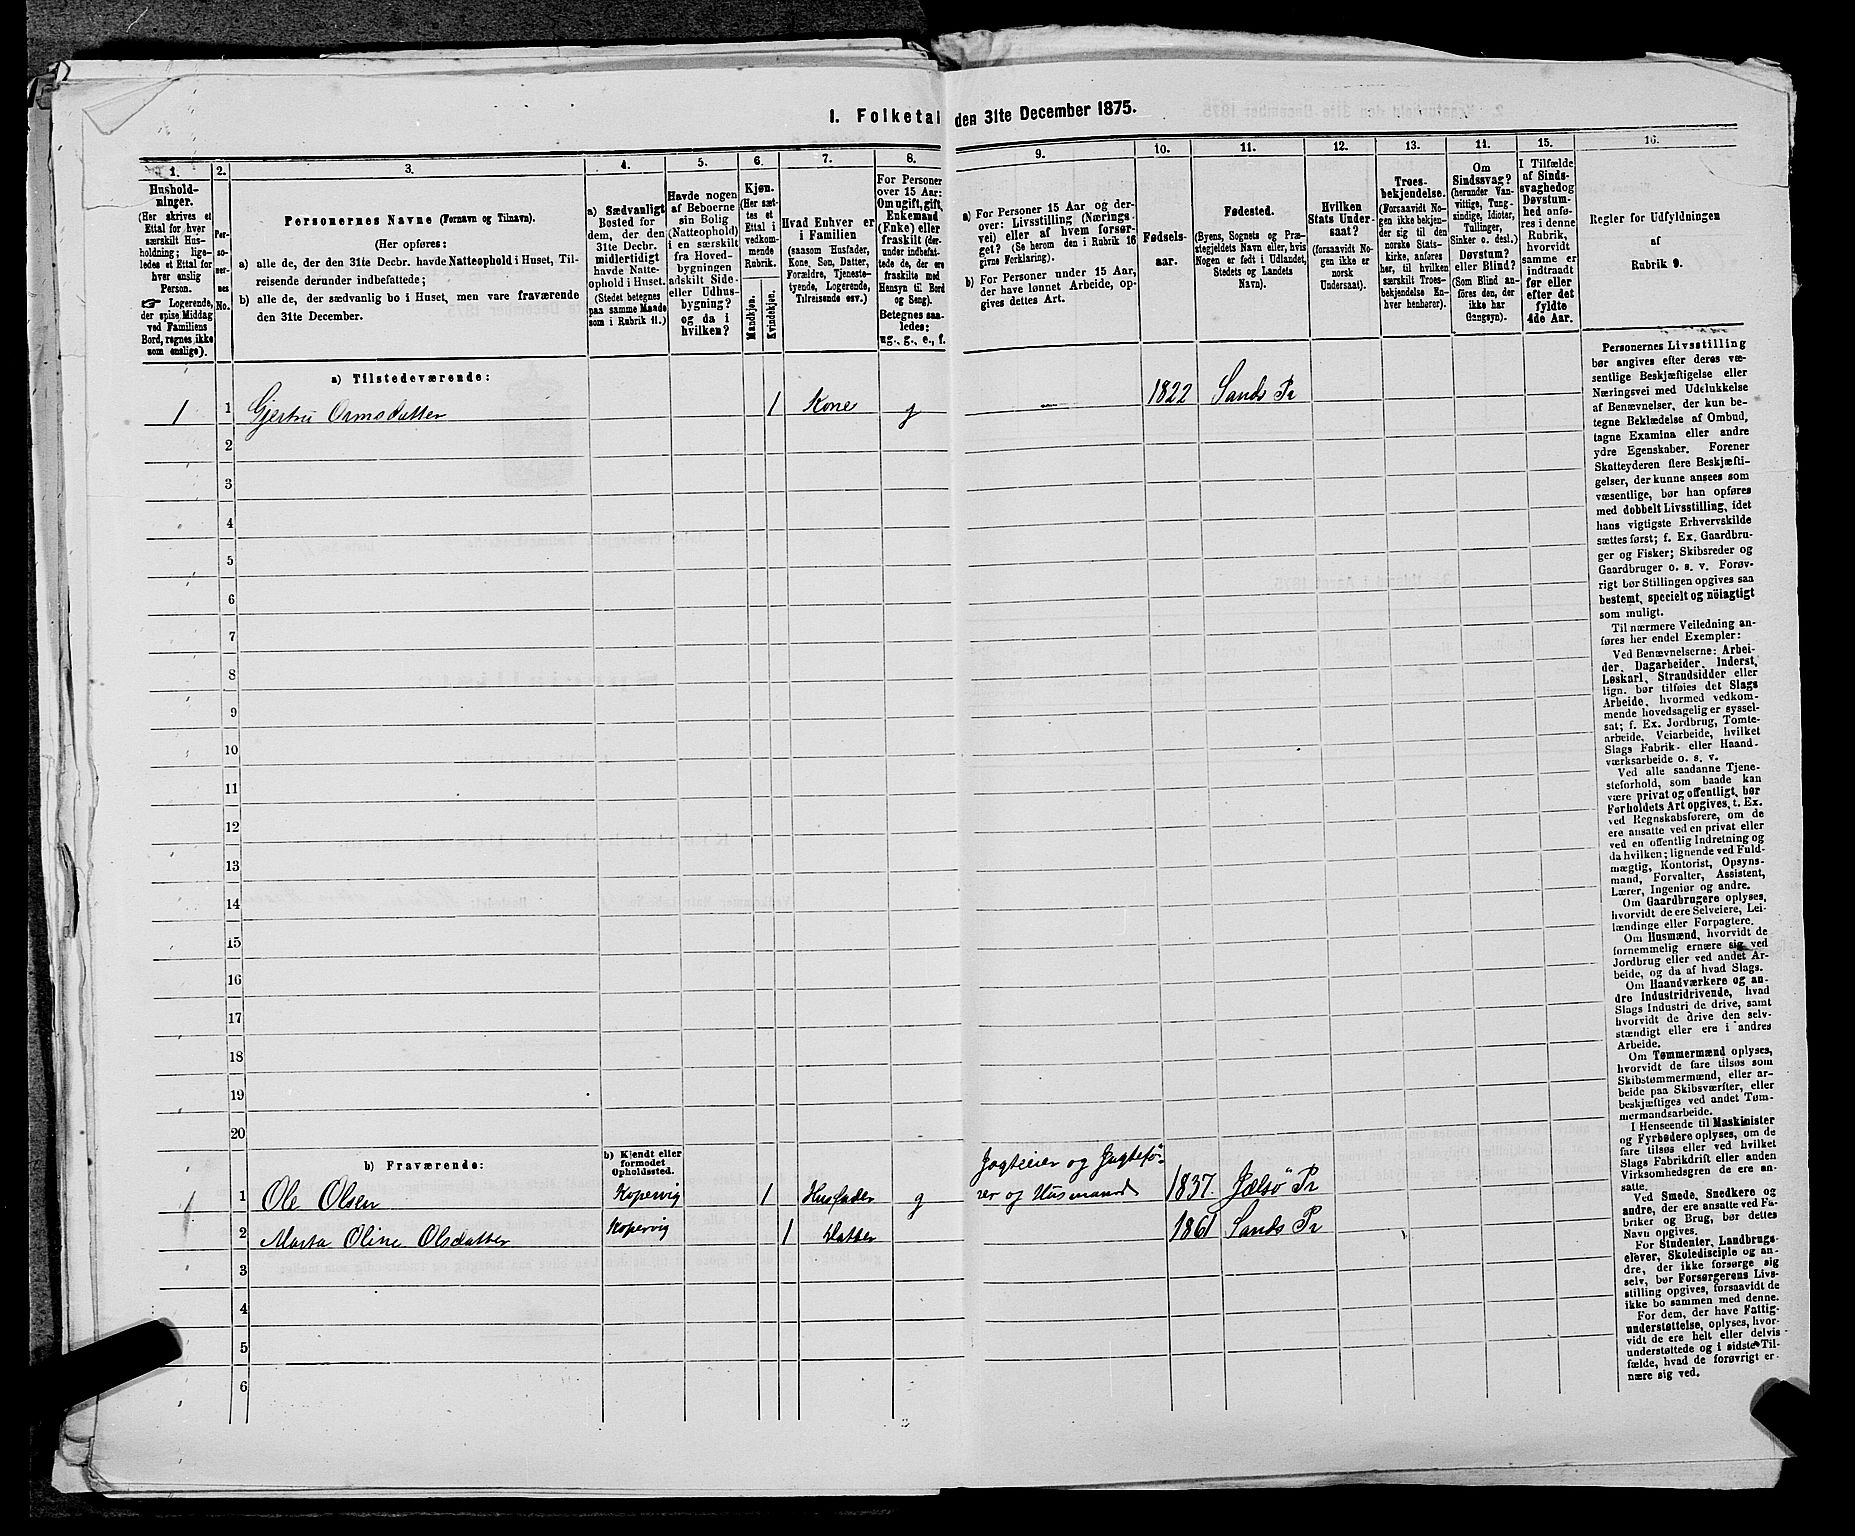 1. Folketal den 31te December 1875.
1. 2. 3. 4. 5. 6. 7. 8. 9. 10. 11. 12. 13. 14. 15. 16.
Hushold-
ninger.
(Her skrives et
Ettal for hver
særskilt Hus-
holdning; lige-
ledes et Ettal for
hver enslig
Person.
☞ Logerende,
der spise Middag
ved Familiens
Bord, regnes ikke
som enslige).
Per-
so-
ner-
nes
No.
Personernes Navne (Fornavn og Tilnavn).
(Her opføres:
a) alle de, der den 31te Decbr. havde Natteophold i Huset, Til-
reisende derunder indbefattede;
b) alle de, der sædvanlig bo i Huset, men vare fraværende
den 31te December.
a) Sædvanligt
Bosted for
dem, der den
31te Decbr.
midlertidigt
havde Natte-
ophold i Huset.
(Stedet betegnes
paa samme Maade
som i Rubrik 11.)
Havde nogen
af Beboerne
sin Bolig
(Natteophold)
i en særskilt
fra Hoved-
bygningen
adskilt Side-
eller Udhus-
bygning?
og da i
hvilken?
Kjøn.
(Her sæt-
tes et
Ettal i
vedkom-
mende
Rubrik.
Mandkjøn.
Kvindekjøn.
Hvad Enhver er
i Familien
(saasom Husfader,
Kone, Søn, Datter,
Forældre, Tjeneste-
tyende, Logerende,
Tilreisende osv.)
For Personer
over 15 Aar:
Om ugift, gift,
Enkemand
(Enke) eller
fraskilt (der-
under indbefat-
tede de, der ere
fraskilte med
Hensyn til Bord
og Seng).
Betegnes saa-
ledes:
ug., g., e., f.
a) For Personer 15 Aar og der-
over: Livsstilling (Nærings-
vei) eller af hvem forsør-
get? (Se herom den i Rubrik 16
givne Forklaring).
b) For Personer under 15 Aar,
der have lønnet Arbeide, op-
gives dettes Art.
Fødsels-
aar.
Fødested.
(Byens, Sognets og Præ-
stegjeldets Navn eller, hvis
Nogen er født i Udlandet,
Stedets og Landets
Navn).
Hvilken
Stats Under-
saat?
(forsaavidt No-
gen ikke er
norsk
Undersaat).
Troes-
bekjendelse.
(Forsaavidt No-
gen ikke bekjen-
der sig til den
norske Stats-
kirke, anføres
her, til hvilken
særskilt Troes-
bekjendelse En-
hver henhører).
Om
Sindssvag?
(herunder Van-
vittige, Tung-
sindige, Idioter,
Tullinger,
Sinker o. desl.)
Døvstum?
eller Blind?
(Som Blind an-
føres den, der
ikke har
Gangsyn).
I Tilfælde
af Sinds-
svaghed og
Døvstum-
hed anfø-
res i denne
Rubrik,
hvorvidt
samme er
indtraadt
før eller
efter det
fyldte
4de Aar.
Regler for Udfyldningen
af
Rubrik 9.
a) Tilstedeværende:
1 1 Gjertru Ormsdatter 1 Kone g 1822 Sands Pr
2
3
4
5
6
7
8
9
10
11
12
13
14
15
16
17
18
19
20
b) Fraværende:
b) Kjendt eller
formodet
Opholdssted.
Jagteeier og Jagtefø-
1 1 Ole Olsen Kopervig 1 Husfader g rer og Husmand 1837. Jelsø Pr
2 Marta Oline Olsdatter Kopervig 1 Datter 1861 Sands Pr
3
4
5
6
Personernes Livsstilling
bør angives efter deres væ-
sentlige Beskjæftigelse eller
Næringsvei med Udelukkelse
af Benævnelser, der kun be-
tegne Beklædelse af Ombud,
tagne Examina eller andre
ydre Egenskaber. Forener
Skatteyderen flere Beskjæfti-
gelser, der kunne ansees som
væsentlige, bør han opføres
med dobbelt Livsstilling, idet
hans vigtigste Erhvervskilde
sættes først; f. Ex. Gaardbru-
ger og Fisker; Skibsreder og
Gaardbruger o. s. v. Forøv-
rigt bør Stillingen opgives saa
bestemt, specielt og nöiagtigt
som muligt.
Til nærmere Veiledning an-
føres her endel Exempler:
Ved Benævnelserne: Arbei-
der, Dagarbeider, Inderst,
Løskarl, Strandsidder eller
lign. bør tilføies det Slags
Arbeide, hvormed vedkom-
mende hovedsagelig er syssel-
sat; f. Ex. Jordbrug, Tomte-
arbeide, Veiarbeide, hvilket
Slags Fabrik- eller Haand-
værksarbeide o. s. v.
Ved alle saadanne Tjene-
steforhold, som baade kan
være privat og offentligt, bør
Forholdets Art opgives, t. Ex.
ved Regnskabsførere, om de
ere ansatte ved en privat eller
ved en offentlig Indretning og
da hvilken; lignende ved Fuld-
mægtig, Kontorist, Opsyns-
mand, Forvalter, Assistent,
Lærer, Ingeniør og andre.
Om Gaardbrugere oplyses,
hvorvidt de ere Selveiere, Lei-
lændinge eller Forpagtere.
Om Husmænd, hvorvidt de
fornemmelig ernære sig ved
Jordbrug eller ved andet Ar-
beide, og da af hvad Slags.
Om Haandværkere og an-
dre Industridrivende, hvad
Slags Industri de drive, samt
hvorvidt de drive den selv-
stændigt eller ere i andres
Arbeide.
Om Tømmermænd oplyses,
hvorvidt de fare tilsøs som
Skibstømmermænd, eller ar-
beide paa Skibsværfter, eller
beskjæftiges ved andet Tøm-
mermandsarbeide.
I Henseende til Maskinister
og Fyrbødere oplyses, om de
fare tilsøs eller ved hvilket
Slags Fabrikdrift eller anden
Virksomhedsgren de ere an-
satte.
Ved Smede, Snedkere og
andre, der ere ansatte ved Fa-
briker og Brug, bør dettes
Navn opgives.
For Studenter, Landbrugs-
elever, Skoledisciple og an-
dre, der ikke forsørge sig
selv, bør Forsørgerens Livs-
stilling opgives, forsaavidt de
ikke bo sammen med denne.
For dem, der have Fattig-
understøttelse, oplyses, hvor-
vidt de ere helt eller delvis
understøttede og i sidste Til-
fælde, hvad de forøvrigt er-
nære sig ved.